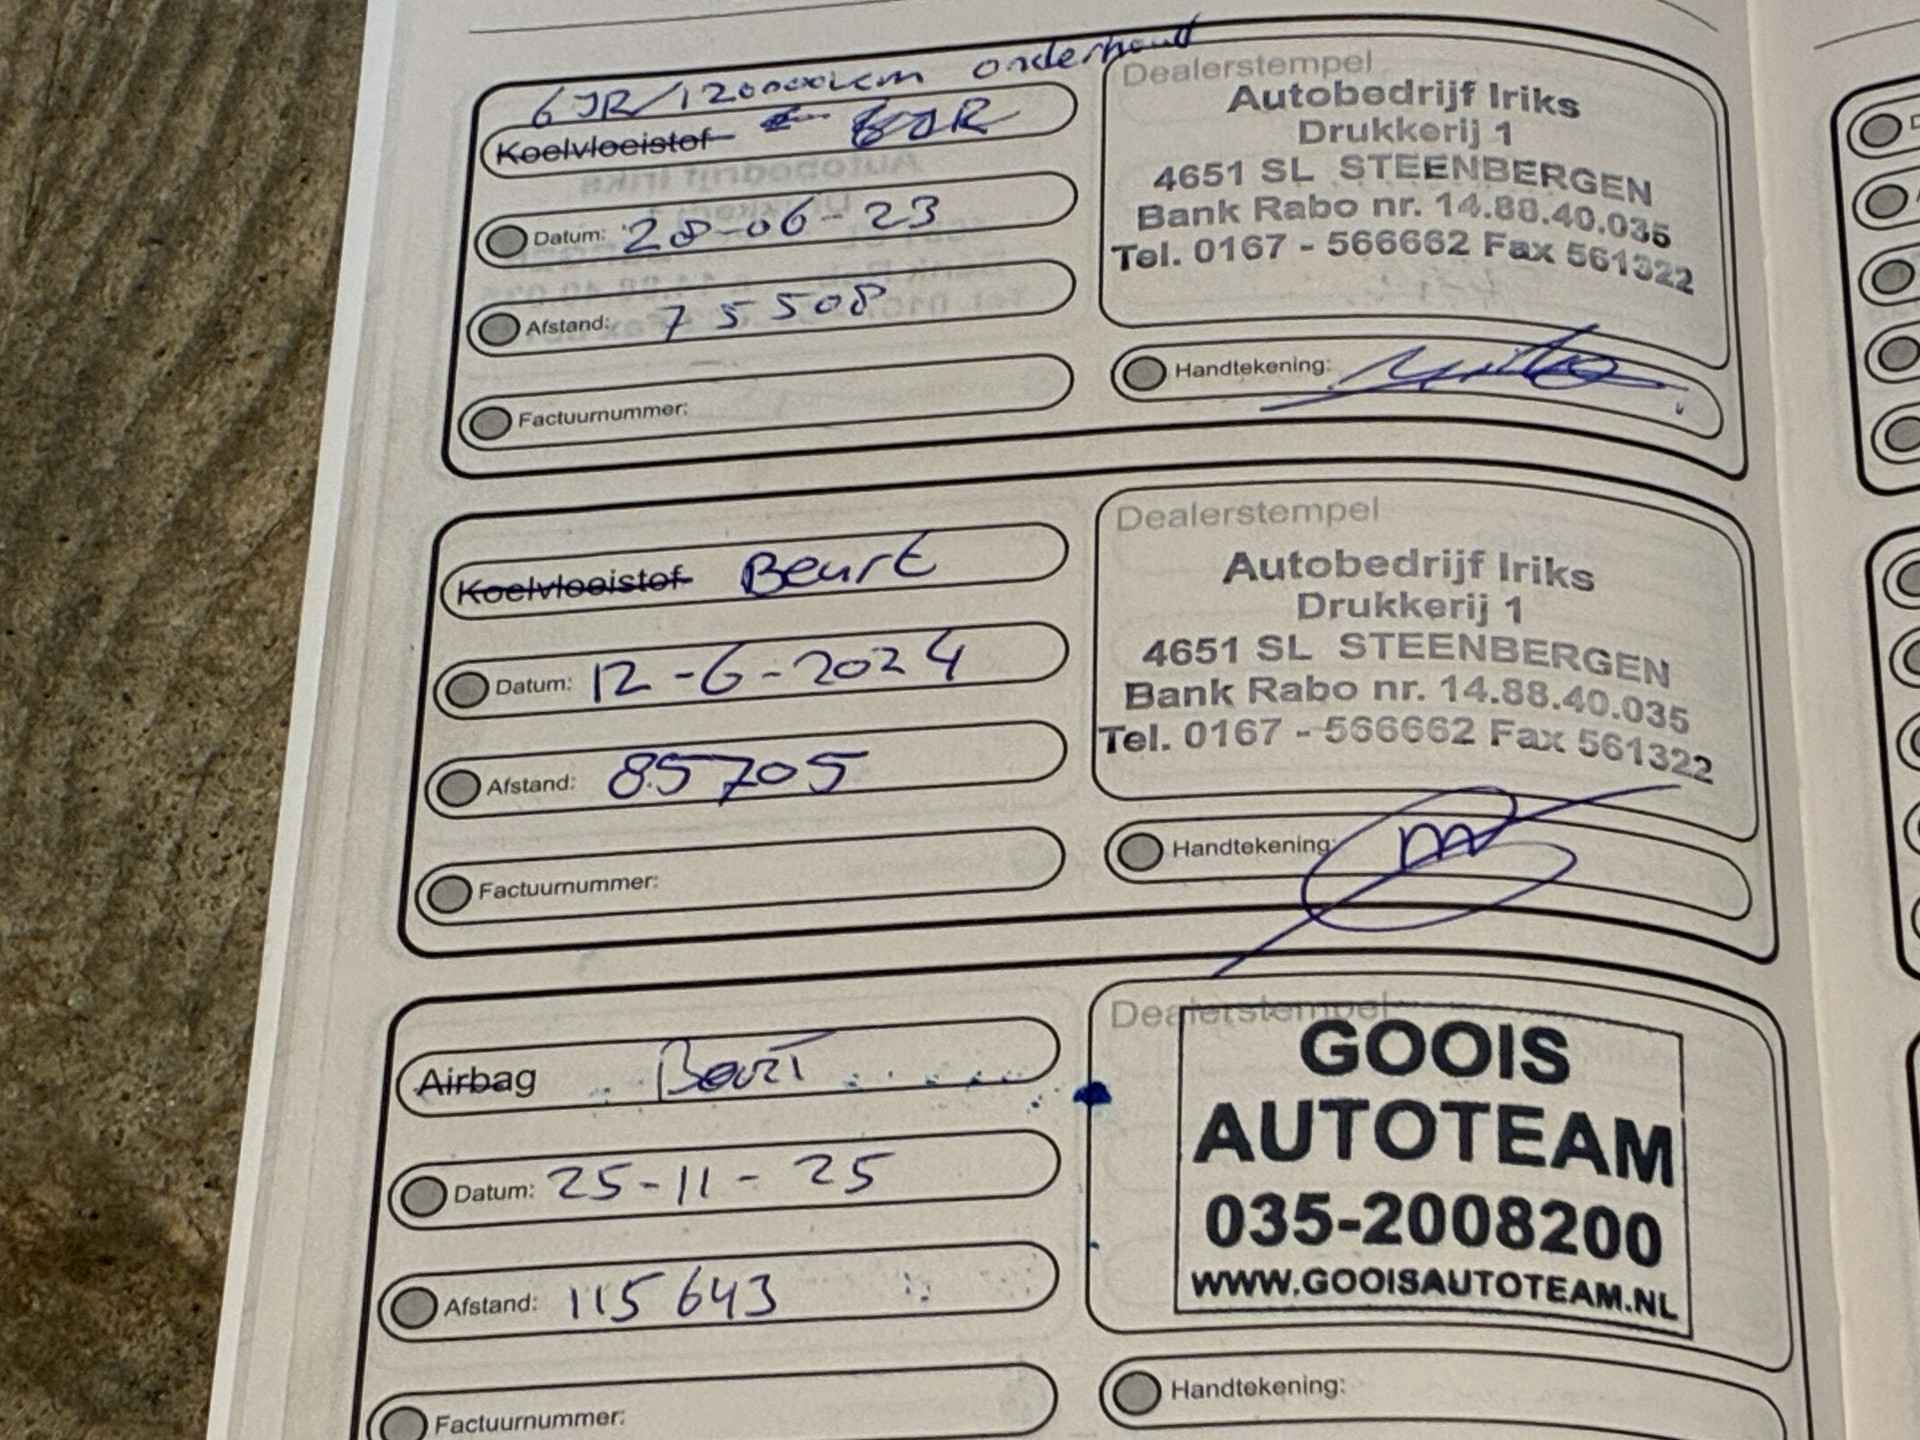 6 JR/120000km onderhoud
Koelvloeistof 6 JR
Datum: 28-06-23
Afstand: 75508
Factuurnummer:
Dealerstempel
Autobedrijf Iriks
Drukkerij 1
4651 SL STEENBERGEN
Bank Rabo nr. 14.88.40.035
Tel. 0167 - 566662 Fax 561322
Handtekening:
Koelvloeistof Beurt
Datum: 12-6-2024
Afstand: 85705
Factuurnummer:
Dealerstempel
Autobedrijf Iriks
Drukkerij 1
4651 SL STEENBERGEN
Bank Rabo nr. 14.88.40.035
Tel. 0167 - 566662 Fax 561322
Handtekening:
Airbag Beurt
Datum: 25-11-25
Afstand: 115643
Factuurnummer:
Dealerstempel
GOOIS
AUTOTEAM
035-2008200
WWW.GOOISAUTOTEAM.NL
Handtekening: